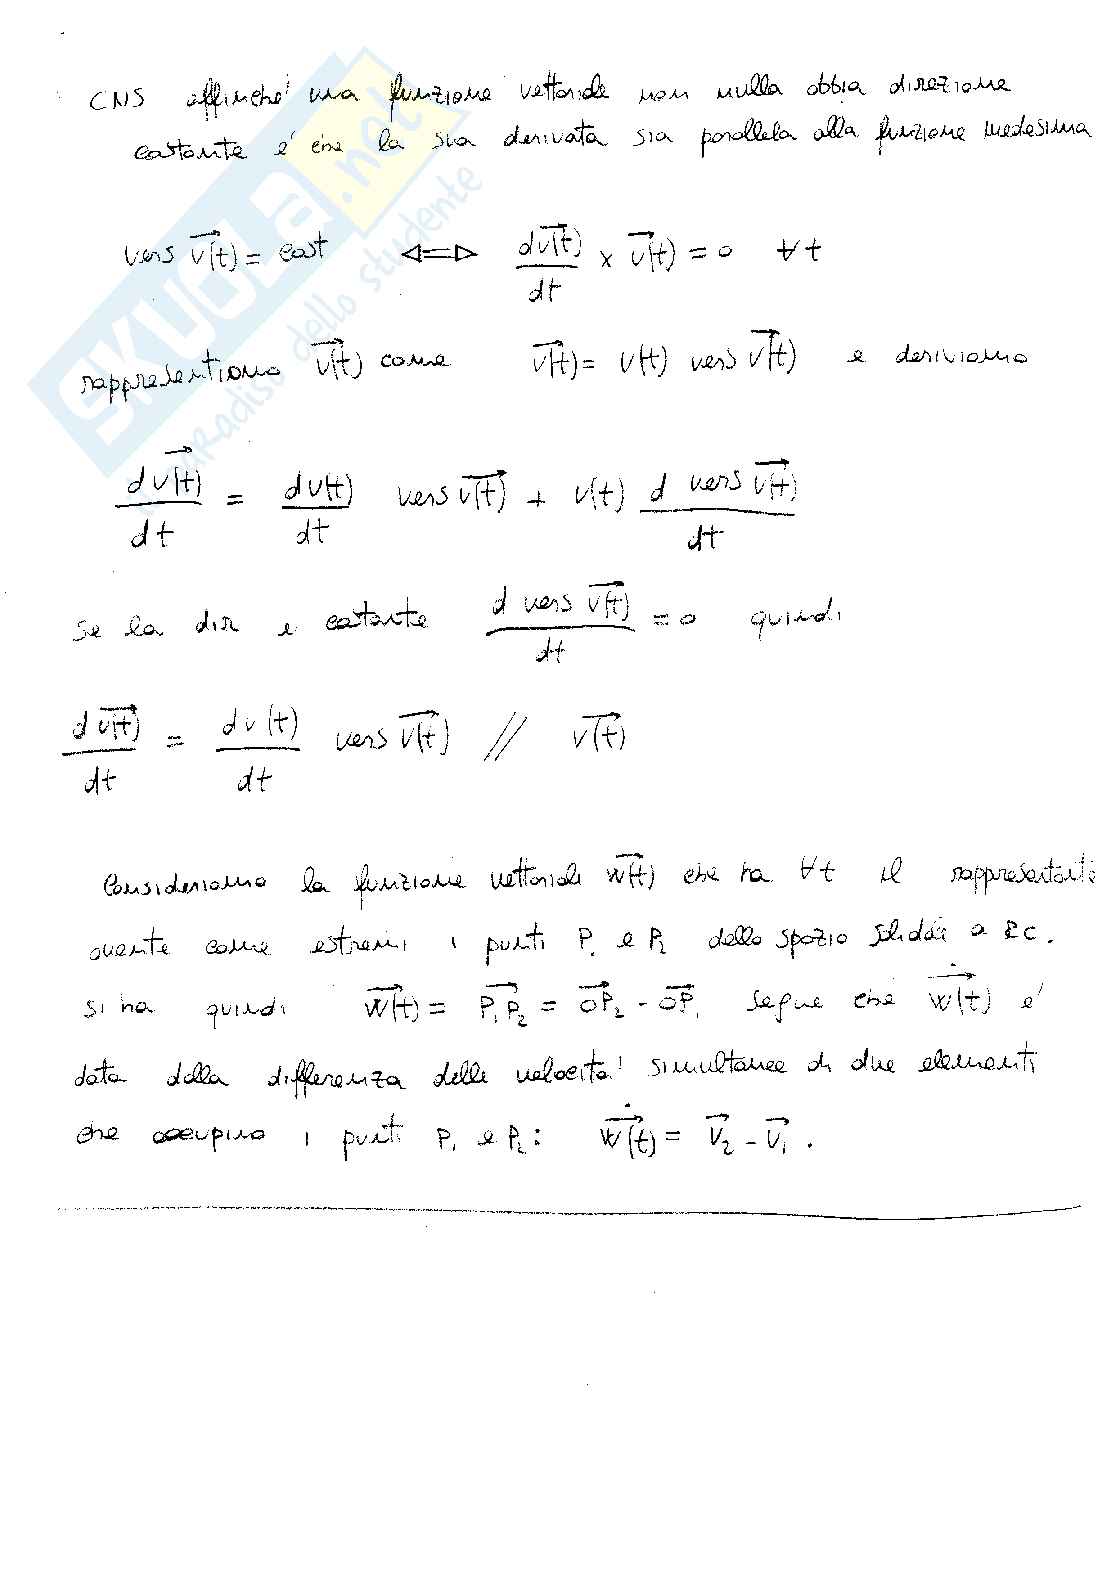 CNS affinché una funzione vettoriale non nulla abbia direzione
costante é che la sua derivata sia parallela alla funzione medesima
vers v(t) = cost ⇔ dv(t)/dt × v(t) = 0 ∀t
rappresentiamo v(t) come v(t) = v(t) vers v(t) e deriviamo
dv(t)/dt = dv(t)/dt vers v(t) + v(t) d vers v(t)/dt
se la dir e costante d vers v(t)/dt = 0 quindi
dv(t)/dt = dv(t)/dt vers v(t) // v(t)
Consideriamo la funzione vettoriale w(t) che ha ∀t il rappresentante
avente come estremi i punti P₁ e P₂ dello spazio solidale a RC.
si ha quindi w(t) = P₁P₂ = OP₂ - OP₁ segue che ẇ(t) e'
data dalla differenza delle velocita' simultanee di due elementi
che occupano i punti P₁ e P₂: ẇ(t) = V₂ - V₁.
SKUOLA.net
il paradiso dello studente